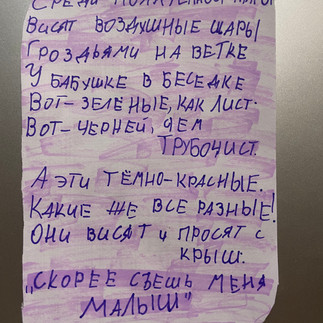 СРЕДИ
ВИСЯТ ВОЗДУШНЫЕ ШАРЫ
ГРОЗДЬЯМИ НА ВЕТКЕ
У БАБУШКЕ В БЕСЕДКЕ
ВОТ-ЗЕЛЕНЫЕ, КАК ЛИСТ.
ВОТ-ЧЕРНЕЙ, ЧЕМ
ТРУБОЧИСТ.
А ЭТИ ТЁМНО-КРАСНЫЕ.
КАКИЕ ЖЕ ВСЕ РАЗНЫЕ!
ОНИ ВИСЯТ И ПРОСЯТ С
КРЫШ.
„СКОРЕЕ СЪЕШЬ МЕНЯ
МАЛЫШ"